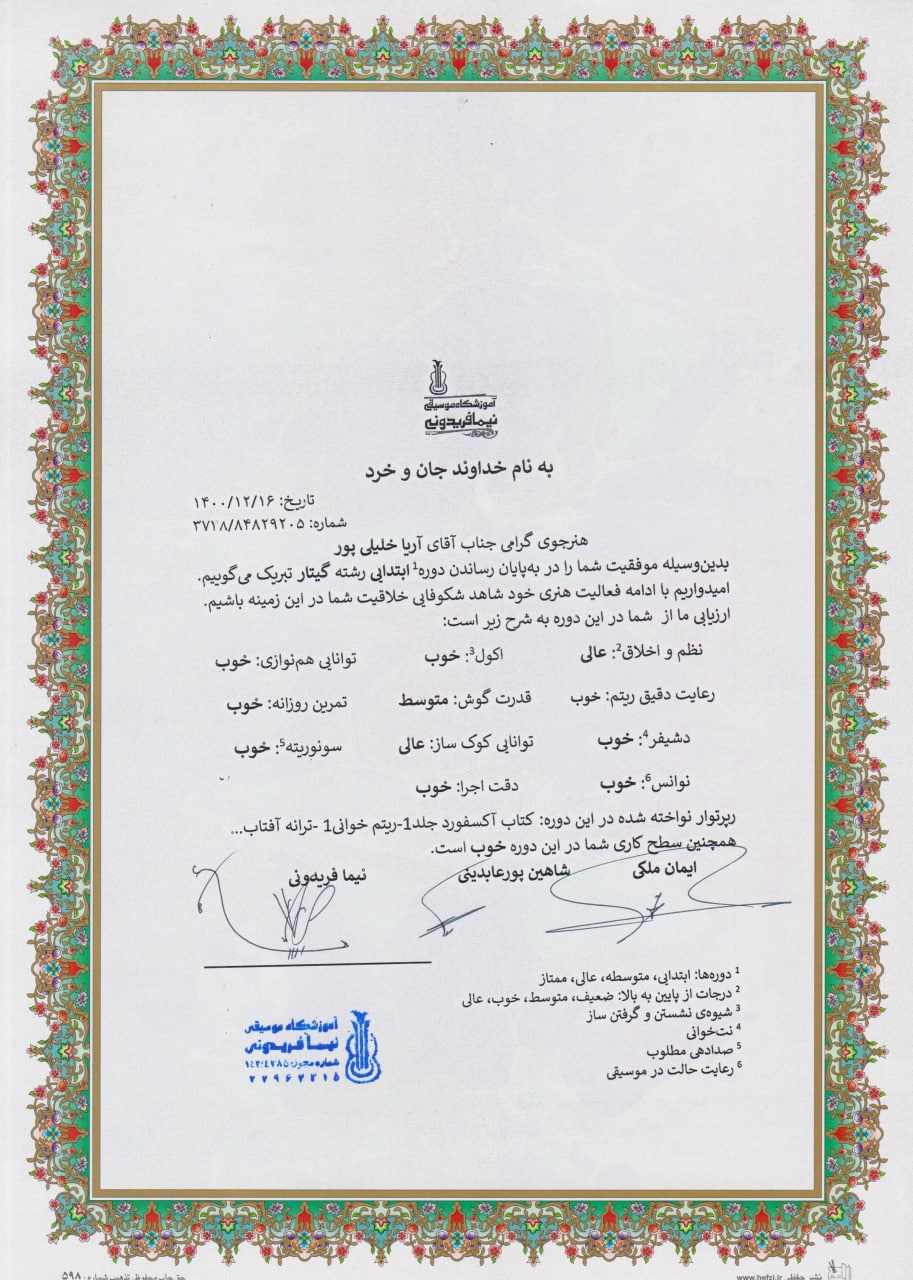 آموزشگاه موسیقی
نیما فریدونی
به نام خداوند جان و خرد
تاریخ: ۱۴۰۰/۱۲/۱۶
شماره: ۳۷۱۸/۸۴۸۲۹۲۰۵
هنرجوی گرامی جناب آقای آریا خلیلی پور
بدین‌وسیله موفقیت شما را در به‌پایان رساندن دوره¹ ابتدایی رشته گیتار تبریک می‌گوییم.
امیدواریم با ادامه فعالیت هنری خود شاهد شکوفایی خلاقیت شما در این زمینه باشیم.
ارزیابی ما از شما در این دوره به شرح زیر است:
نظم و اخلاق²: عالی اکول³: خوب توانایی هم‌نوازی: خوب
رعایت دقیق ریتم: خوب قدرت گوش: متوسط تمرین روزانه: خوب
دشیفر⁴: خوب توانایی کوک ساز: عالی سونوریته⁵: خوب
نوانس⁶: خوب دقت اجرا: خوب
رپرتوار نواخته شده در این دوره: کتاب آکسفورد جلد1-ریتم خوانی1 -ترانه آفتاب...
همچنین سطح کاری شما در این دوره خوب است.
ایمان ملکی شاهین پورعابدینی نیما فریدونی
¹ دوره‌ها: ابتدایی، متوسطه، عالی، ممتاز
² درجات از پایین به بالا: ضعیف، متوسط، خوب، عالی
³ شیوه‌ی نشستن و گرفتن ساز
⁴ نت‌خوانی
⁵ صدادهی مطلوب
⁶ رعایت حالت در موسیقی
آموزشگاه موسیقی
نیما فریدونی
شماره مجوز:
۲۲۹۶۲۲۱۵
نشر حفظی www.hefzi.ir
حق چاپ محفوظ، تذهیب شماره: ۵۹۸